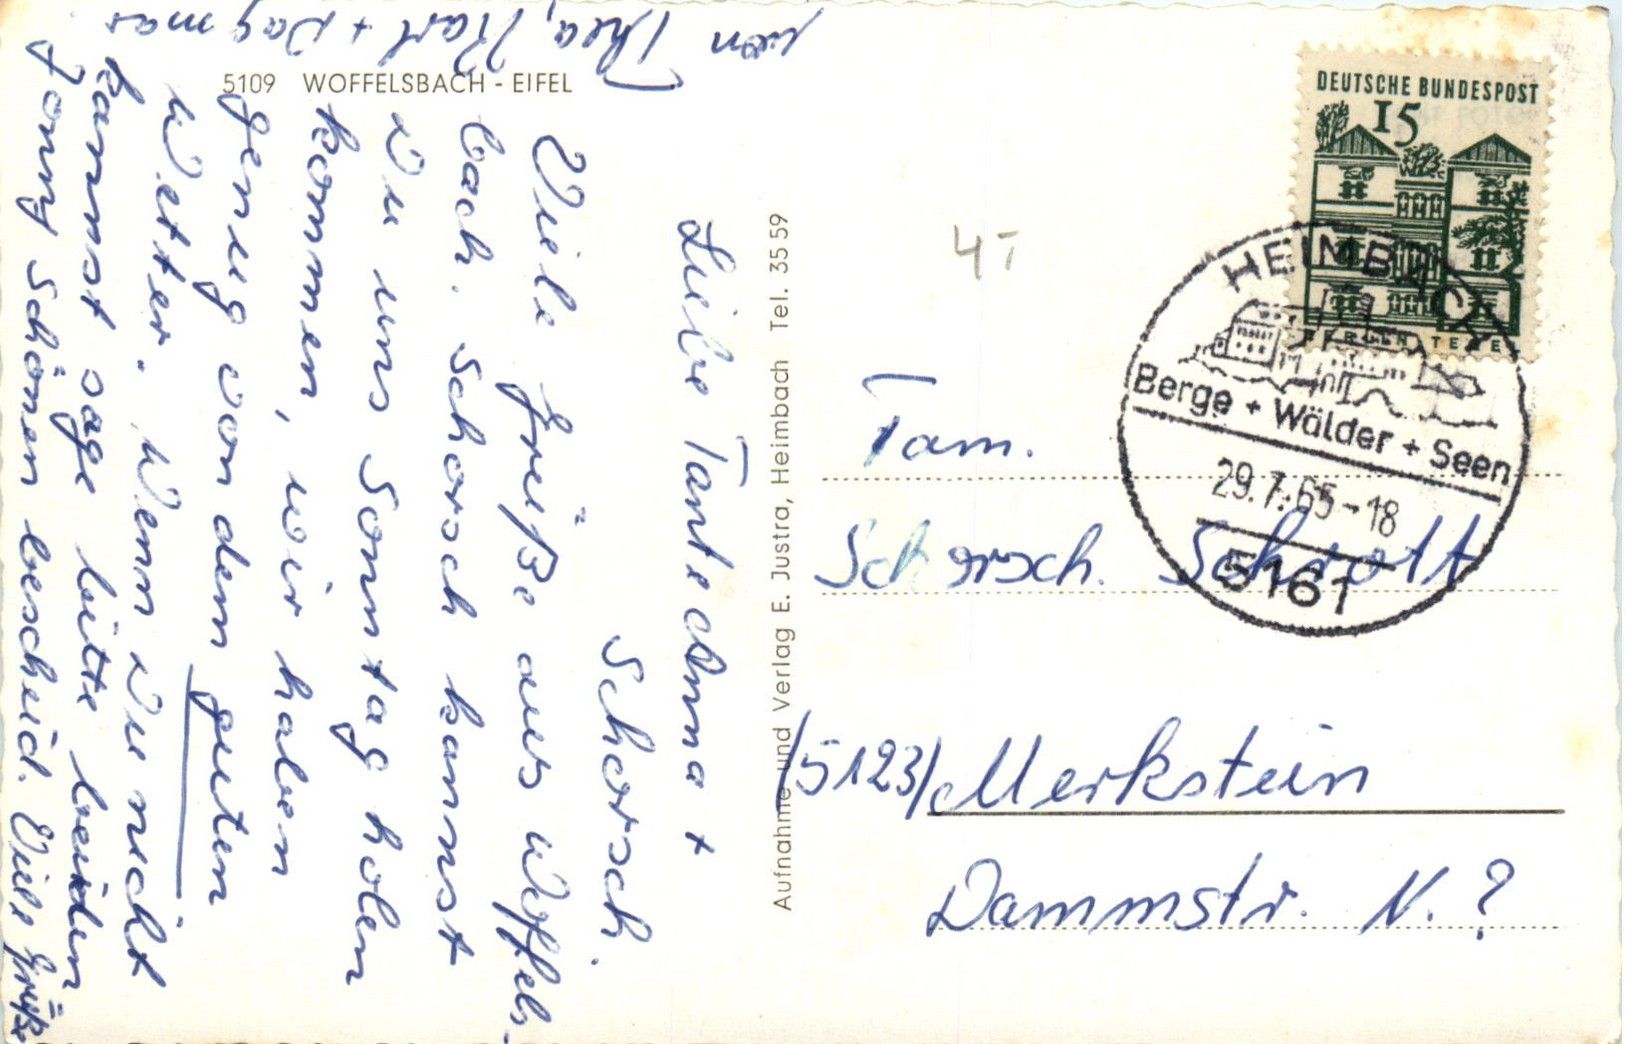 5109 WOFFELSBACH - EIFEL
Liebe Tante Anna +
Schorsch.
Viele Grüße aus Woffels-
bach. Schorsch kannst
Du uns Sonntag holen
kommen, wir haben
genug von dem guten
Wetter. Wenn Du nicht
kannst sage bitte beiden
Jonny schönen bescheid. Viele Grüße
von Thea, Karl + Dagmar
Aufnahme und Verlag E. Justra, Heimbach Tel. 35 59
4T
DEUTSCHE BUNDESPOST
15
BERLIN TEGEL
HEIMBACH
Berge + Wälder + Seen
29.7.65-18
5161
Fam.
Schorsch. Schrott
(5123) Merkstein
Dammstr. N. ?